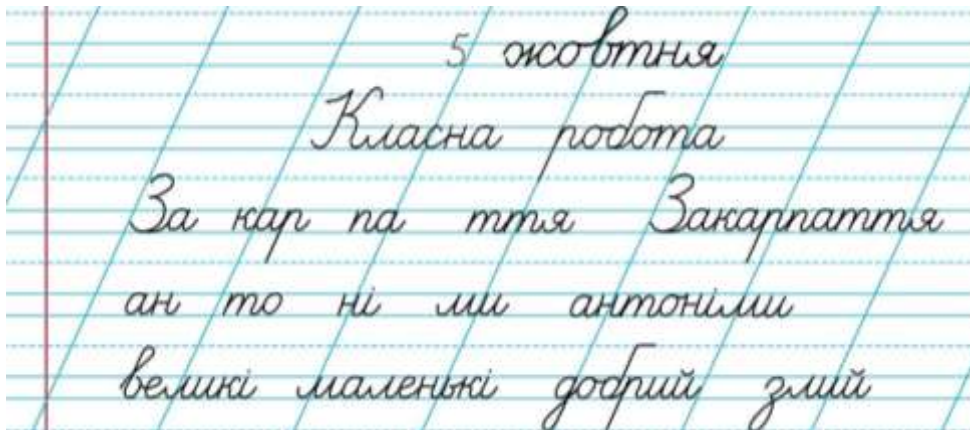 5 жовтня
Класна робота
За кар па ття Закарпаття
ан то ні ми антоніми
великі маленькі добрий злий